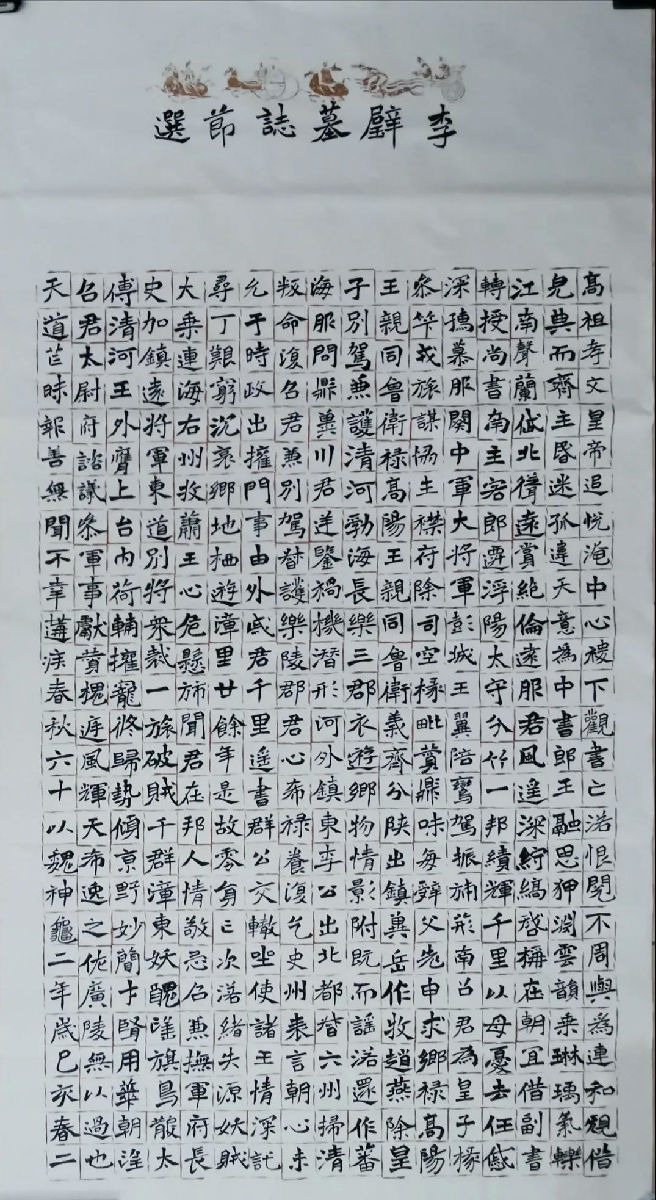 李璧墓誌節選
高祖孝文皇帝追悦淹中心稷下觀書亡落恨閱不周與為連和規借
皃典而齊主昏迷孤違天意為中書郎王融思狎淵雲韻乘琳瑀氣轢
江南聲蘭岱北得遠賞絶倫遠服君風遥深紵縞啓稱在朝宜借副書
轉授尚書南主客郎遷浮陽太守分竹一邦績輝千里以母憂去任戚
深穗慕服闋中軍大將軍彭城王翼陪鸞駕振旆荊南召君為皇子掾
叅竿或旅謀協主襟府除司空掾毗賛鼎味每辟父老申求鄉祿高陽
王親同魯衛祿高陽王親同魯衛義齊分陝出鎮冀岳作牧趙燕除皇
子別駕兼護清河勃海長樂三郡衣遊鄉物情影附既而謡落還作蕃
海服問鼎冀川君送鑒獨機潛形河外鎮東李公出北都督六州掃清
叛命復召君兼別駕督護樂陵郡君心希祿養復乞史州表言朝心未
允于時政出擁門事由外戚君千里遥書群公交轍坐使諸王情深託
尋丁艱窮沉哀鄉地栖遊漳里廿餘年是故零身亡次落緒失源妖賊
大乘連海右州牧蕭王心危懸旆聞君在邦人情敬忌召兼撫軍府長
史加鎮遠將軍東道別將衆裁一旅破賊千群漳東妖醜蹉旗鳥散太
傅清河王外膺上台內荷輔擢寵終歸勢傾京野妙簡才賢用華朝淫
召君太尉府諮議叅軍事獻賛槐庭風輝天沛逸之佐廣陵無以過也
天道芒昧報善無聞不幸遘疾春秋六十以魏神龜二年歲己亥春二